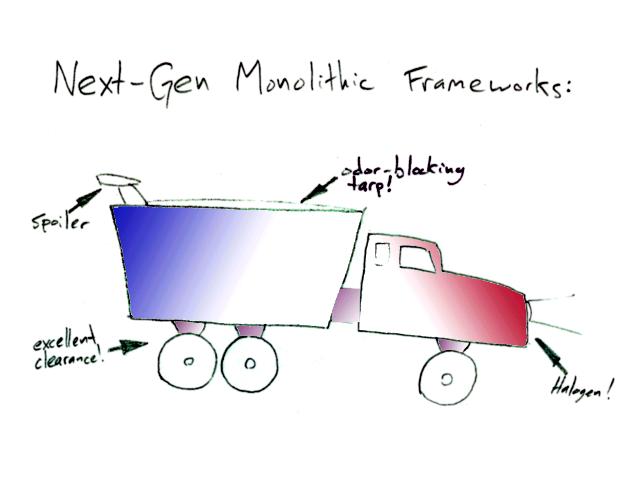 Next-Gen Monolithic Frameworks:
odor-blocking
tarp!
spoiler
excellent
clearance!
Halogen!